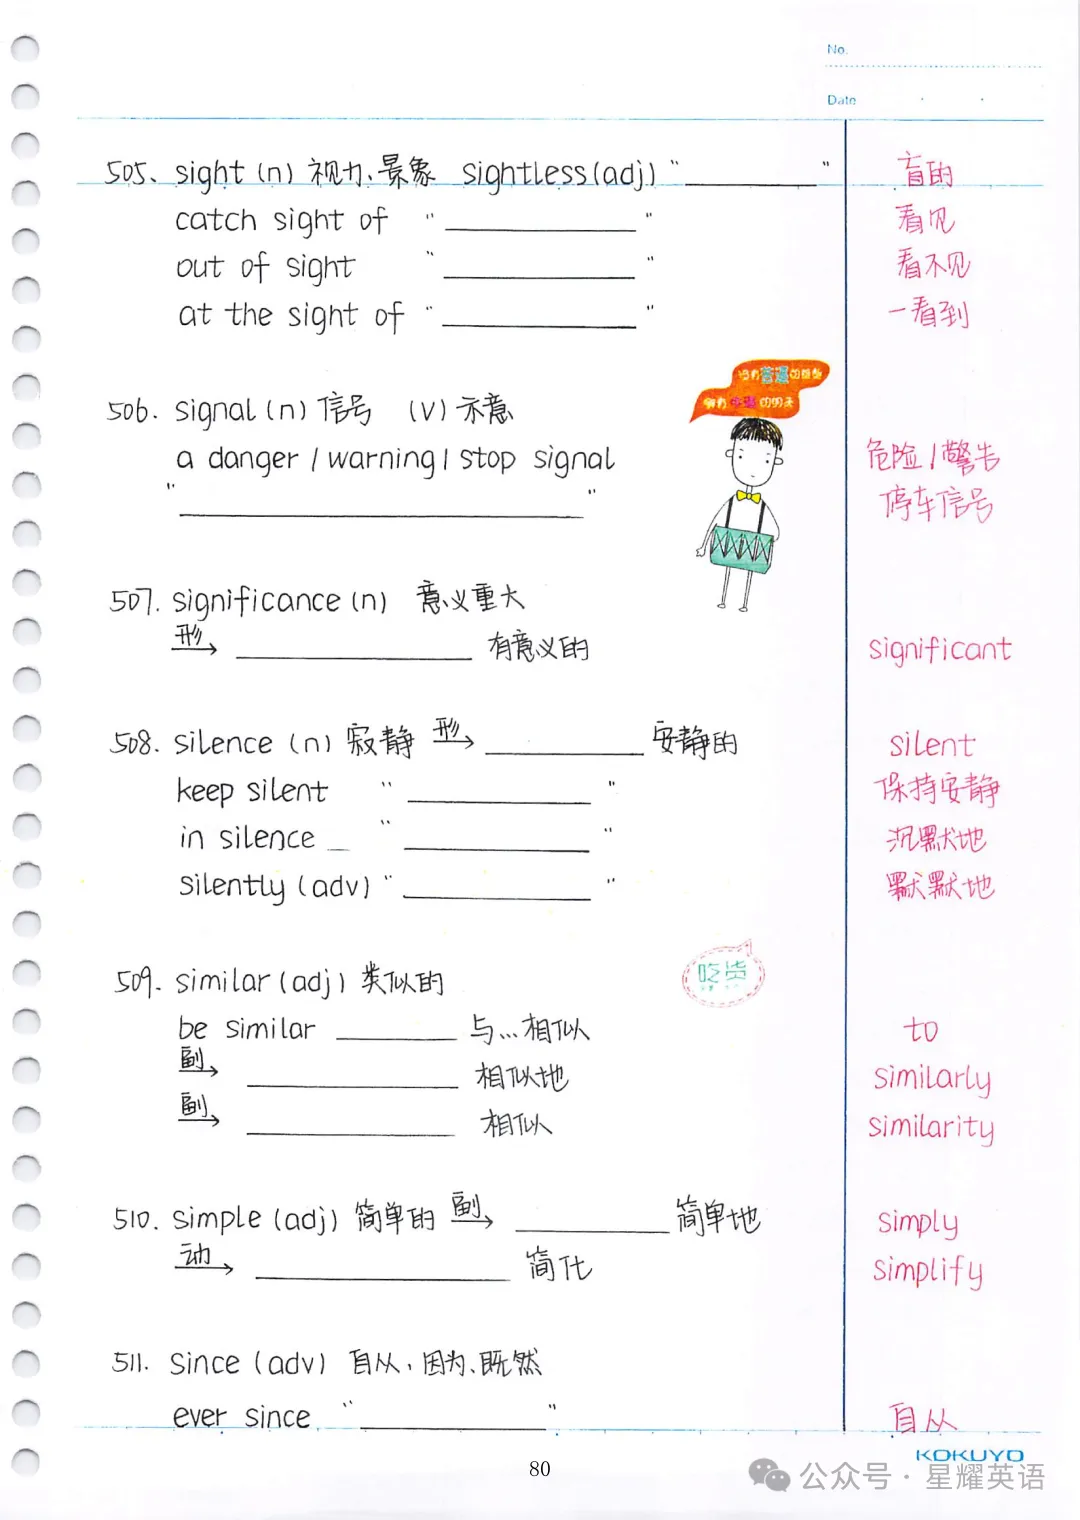 No.
Date
505. sight (n) 视力、景象 sightless (adj) "________" 盲的
catch sight of "________" 看见
out of sight "________" 看不见
at the sight of "________" 一看到
没有普通的
拥有 的明天
506. signal (n) 信号 (v) 示意
a danger / warning / stop signal 危险 / 警告
"________" 停车信号
507. significance (n) 意义重大
形→ ________ 有意义的 significant
508. silence (n) 寂静 形→ ________ 安静的 silent
keep silent "________" 保持安静
in silence _ "________" 沉默地
silently (adv) "________" 默默地
吃货
509. similar (adj) 类似的
be similar ________ 与...相似 to
副→ ________ 相似地 similarly
副→ ________ 相似 similarity
510. simple (adj) 简单的 副→ ________ 简单地 simply
动→ ________ 简化 simplify
511. since (adv) 自从,因为、既然
ever since "________" 自从
KOKUYO
80
公众号 · 星耀英语